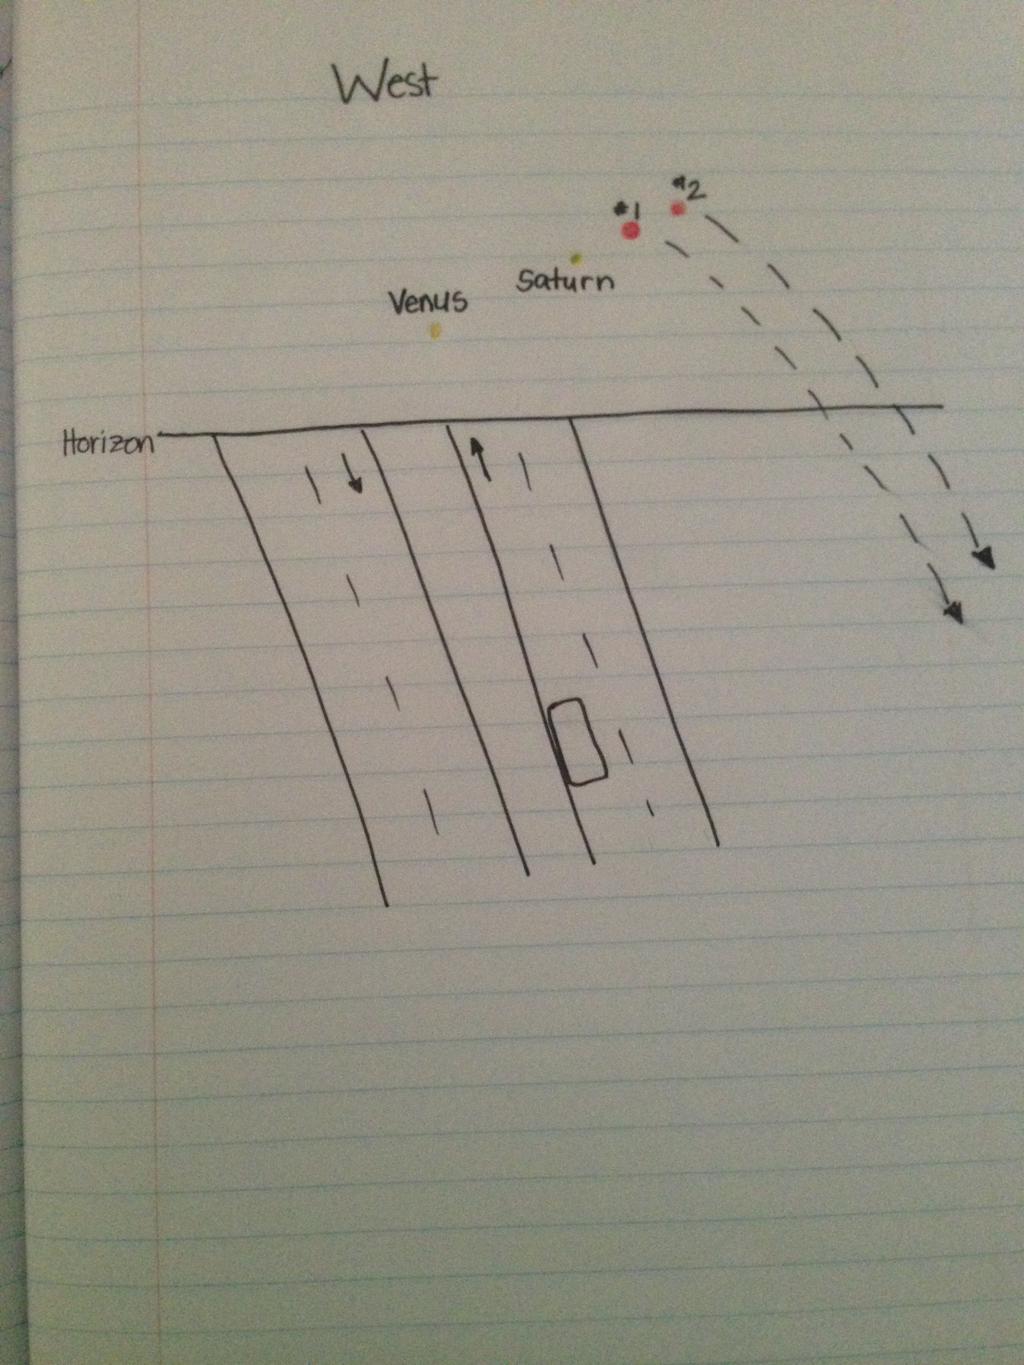 West
#2
#1
Saturn
Venus
Horizon